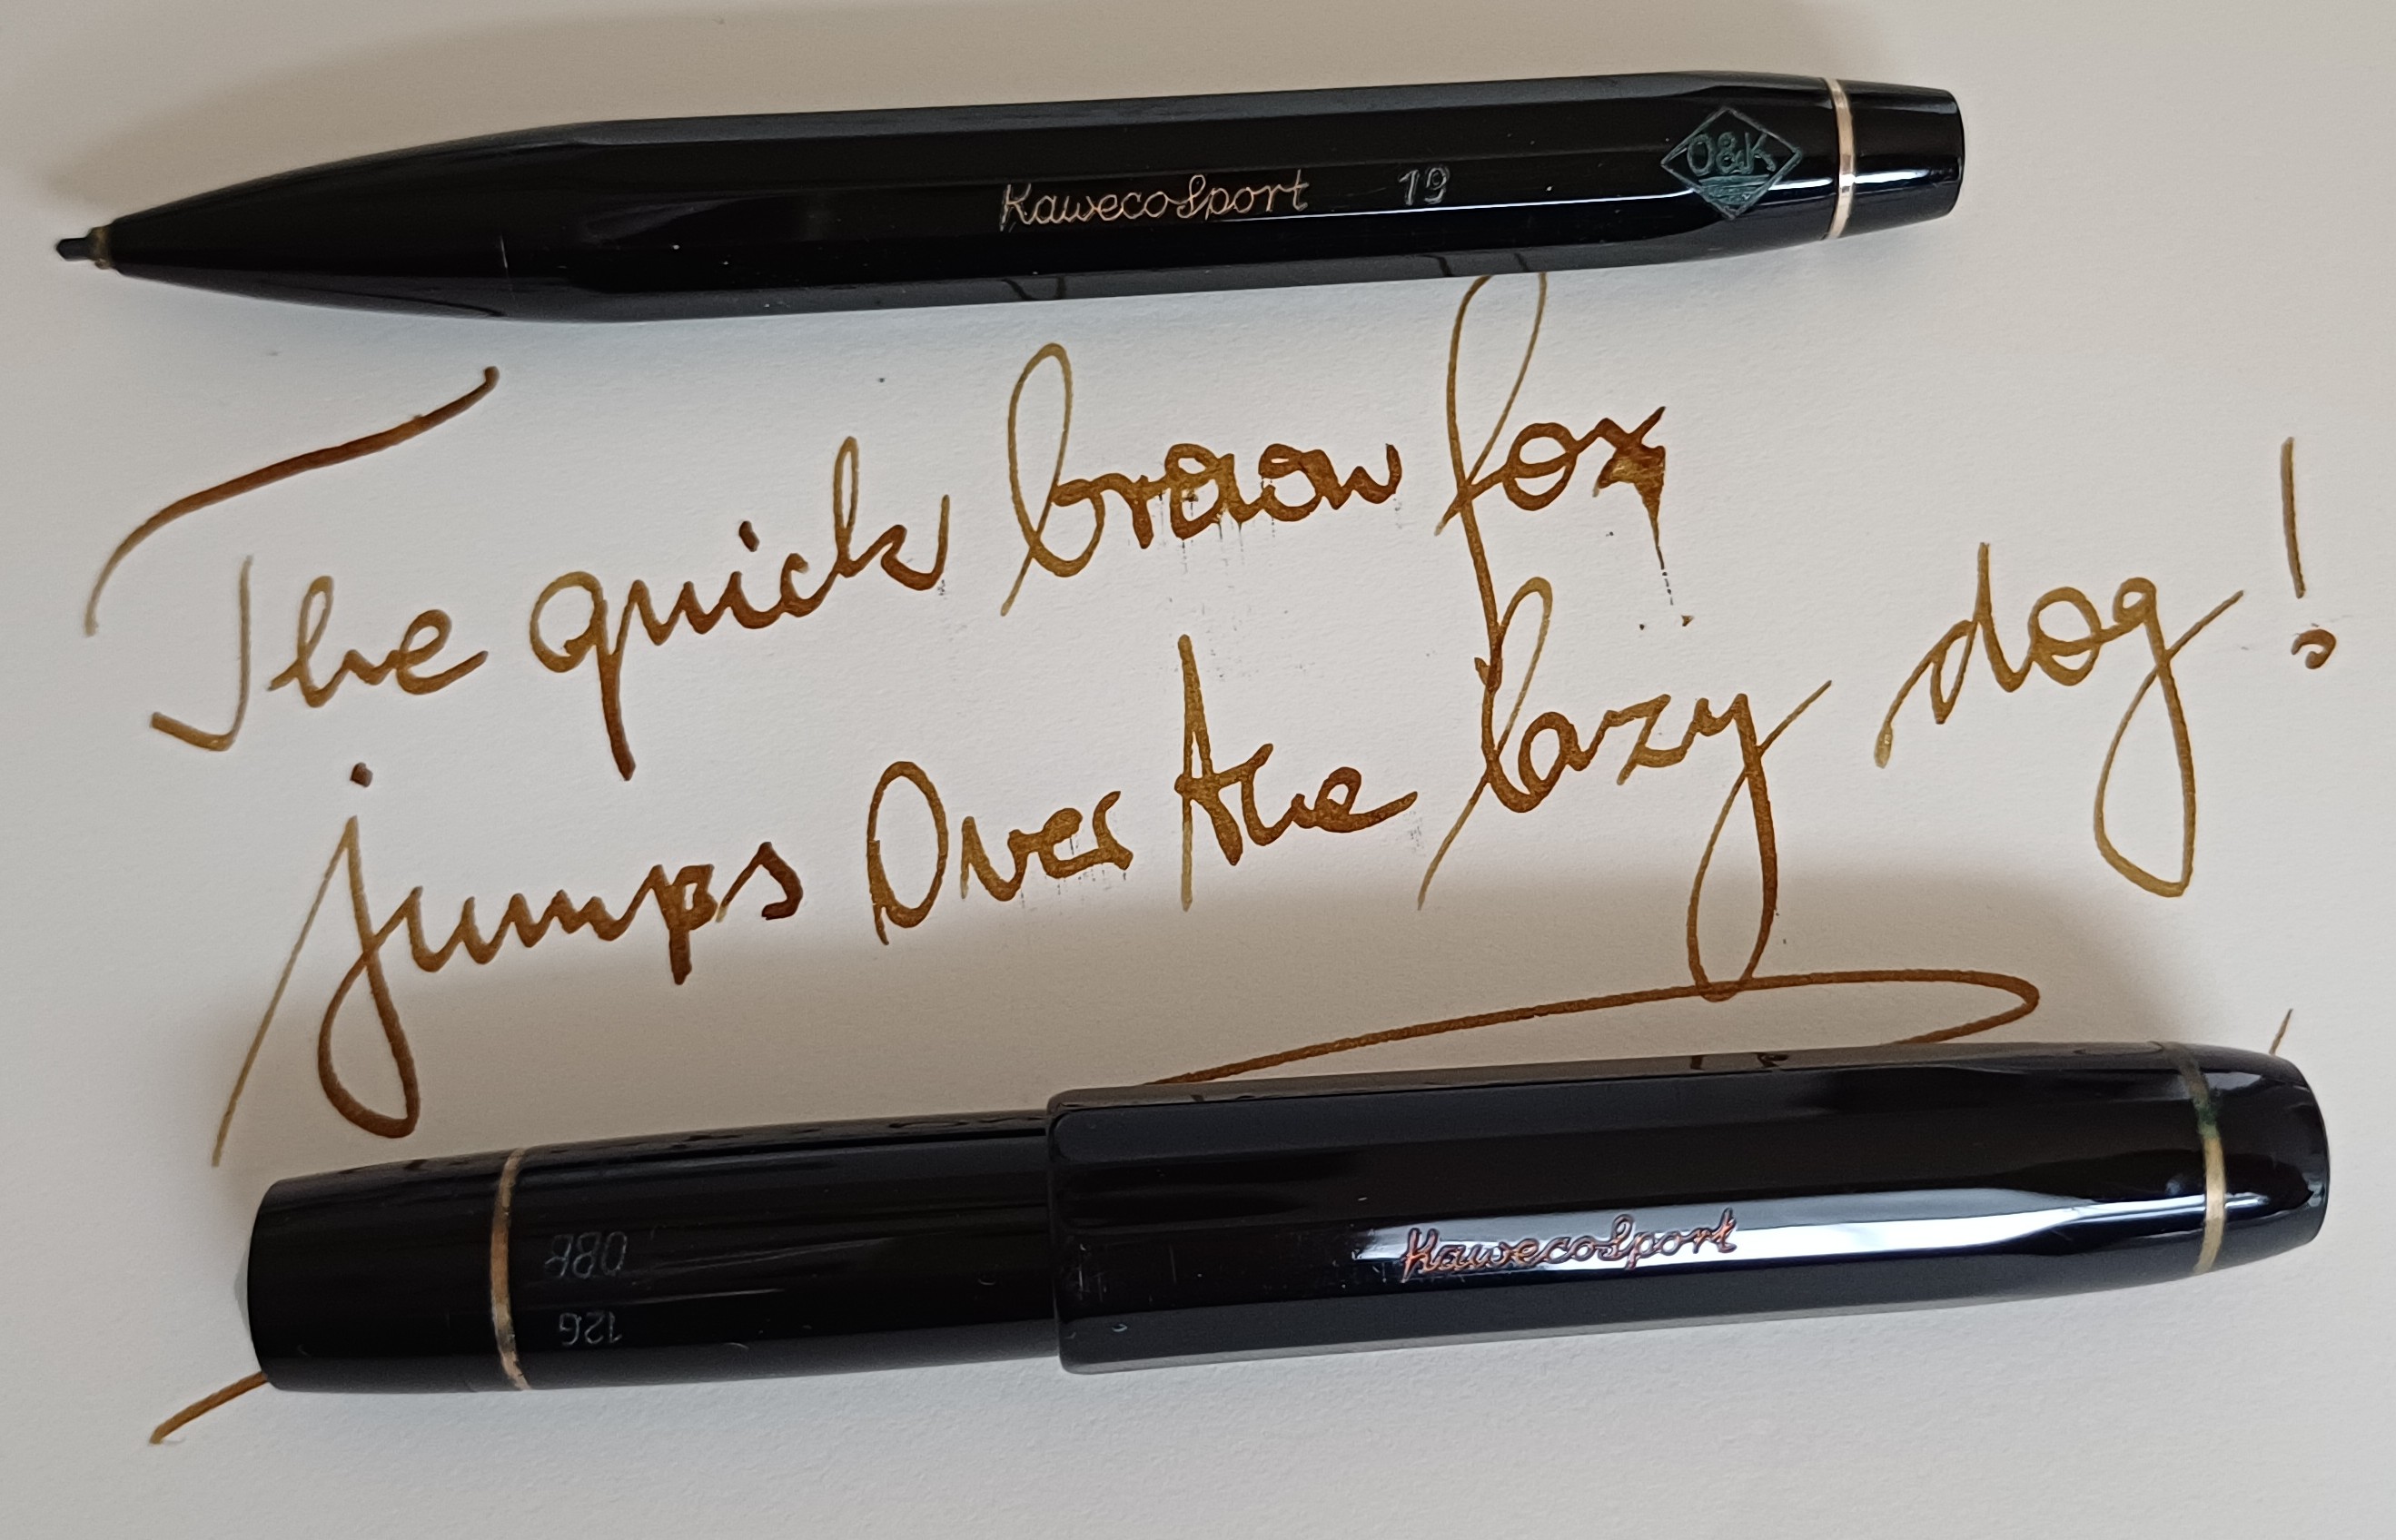 KawecoSport 19 O&K
The quick brown fox
jumps Over the lazy dog!
KawecoSport
OBB
12G